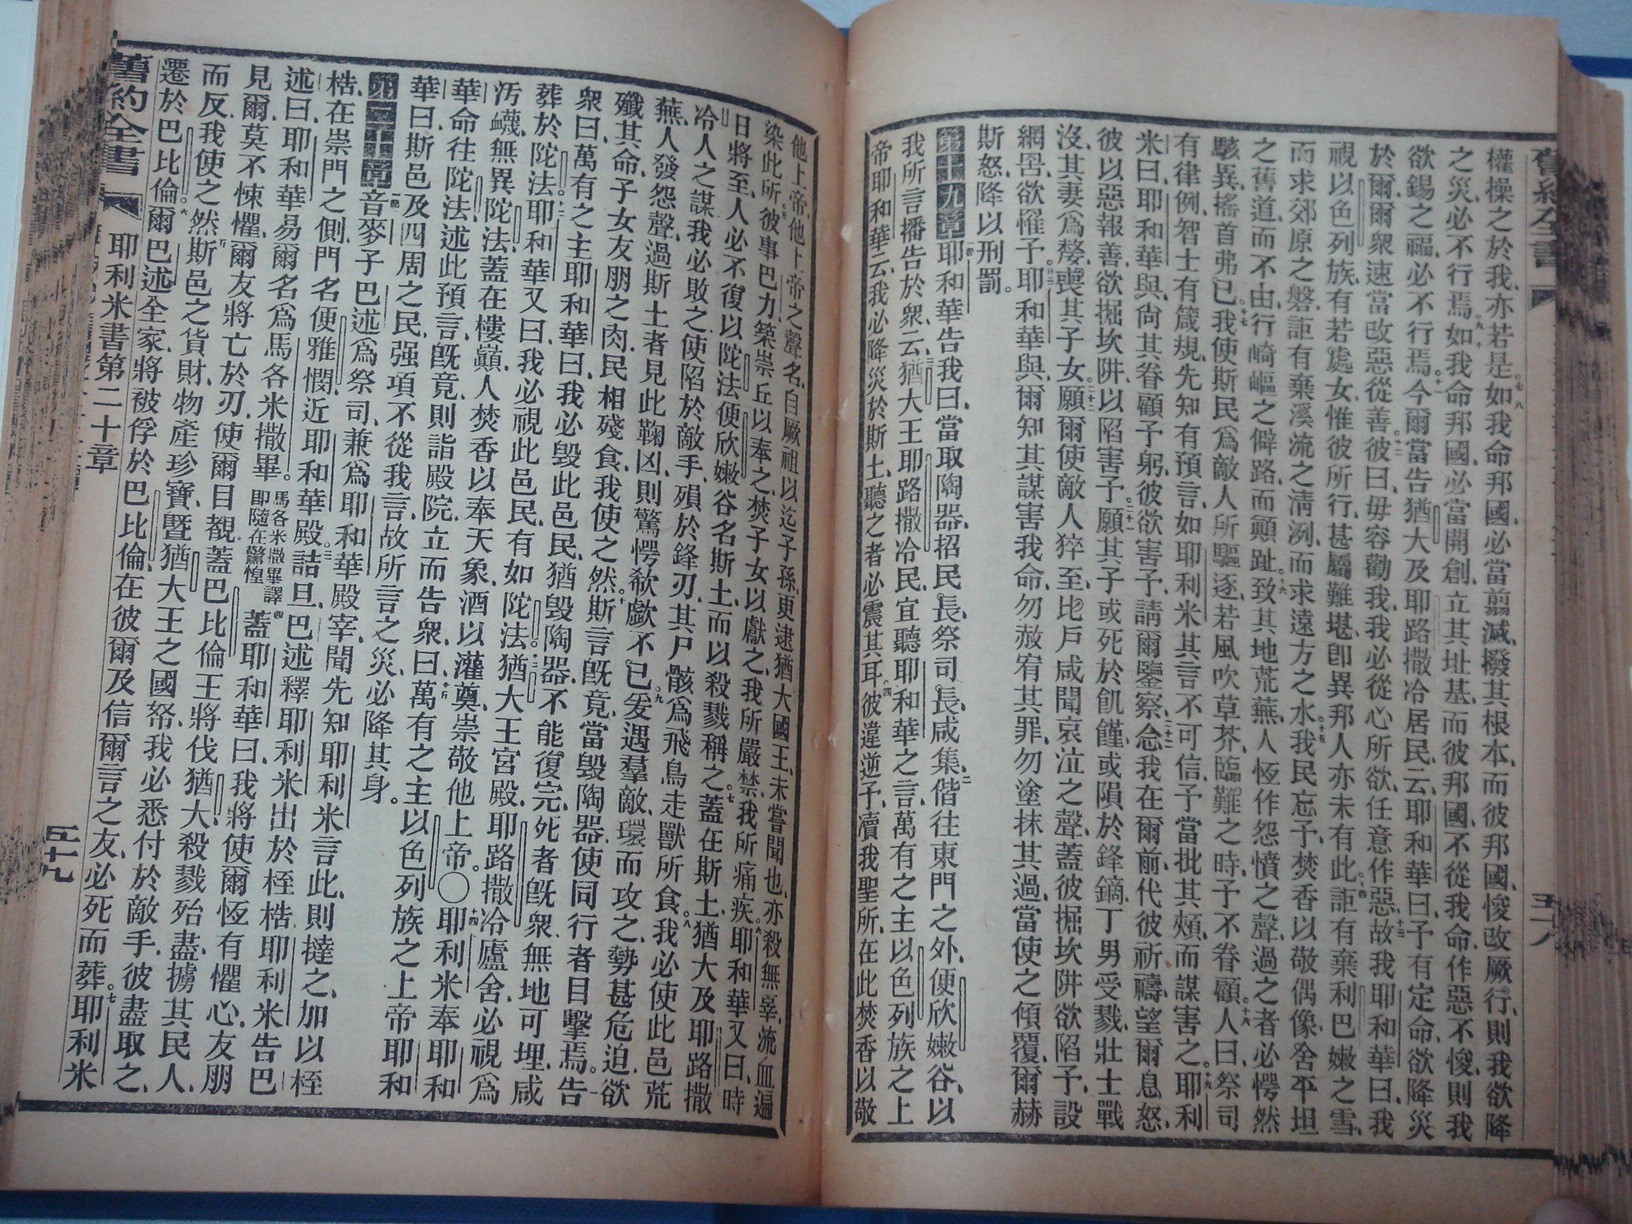 舊約全書
五十八
權操之於我、亦若是、七八如我命邦國、必當翦滅、撥其根本、而彼邦國、悛改厥行、則我欲降
之災、必不行焉、九十如我命邦國、必當開創、立其址基、而彼邦國、不從我命、作惡不悛、則我
欲錫之福、必不行焉、十一今爾當告猶大及耶路撒冷居民、云、耶和華曰、予有定命、欲降災
於爾、爾衆速當改惡從善、十二彼曰、毋容勸我、我必從心所欲、任意作惡、十三故我耶和華曰、我
視以色列族、有若處女、惟彼所行、甚屬難堪、卽異邦人亦未有此、十四詎有棄利巴嫩之雪、
而求郊原之磐、詎有棄溪流之淸冽、而求遠方之水、十五我民忘予、焚香以敬偶像、舍平坦
之舊道、而不由、行崎嶇之僻路、而顚趾、十六致其地荒蕪、人恆作怨憤之聲、過之者必愕然
駭異、搖首弗已、十七我使斯民、爲敵人所驅逐、若風吹草芥、臨難之時、予不眷顧、十八人曰、祭司
有律例、智士有箴規、先知有預言、如耶利米其言不可信、予當批其頰、而謀害之、十九耶利
米曰、耶和華與、尙其眷顧予躬、彼欲害予、請爾鑒察、二十念我在爾前、代彼祈禱、望爾息怒、
彼以惡報善、欲掘坎阱、以陷害予、二十一願其子或死於飢饉、或隕於鋒鏑、丁男受戮、壯士戰
沒、其妻爲嫠、喪其子女、二十二願爾使敵人猝至、比戶咸聞哀泣之聲、蓋彼掘坎阱欲陷予、設
網罟、欲罹予、二十三耶和華與、爾知其謀害我命、勿赦宥其罪、勿塗抹其過、當使之傾覆、爾赫
斯怒、降以刑罰。
第十九章一耶和華告我曰、當取陶器、招民長、祭司長、咸集、二偕往東門之外、便欣嫩谷、以
我所言播告於衆、云、三猶大王、耶路撒冷民、宜聽耶和華之言、萬有之主、以色列族之上
帝耶和華云、我必降災於斯土、聽之者必震其耳、四彼違逆予、瀆我聖所、在此焚香以敬
他上帝、他上帝之聲名、自厥祖以迄子孫、更逮猶大國王、未嘗聞也、亦殺無辜、流血遍
染此所、五彼事巴力、築崇丘以奉之、焚子女以獻之、我所嚴禁、我所痛疾、六耶和華又曰、時
日將至、人必不復以陀法便欣嫩谷名斯土、而以殺戮稱之、七蓋在斯土、猶大及耶路撒
冷人之謀、我必敗之、使陷於敵手、殞於鋒刃、其尸骸爲飛鳥走獸所食、八我必使此邑荒
蕪、人發怨聲、過斯土者見此鞠凶、則驚愕欷歔不已、九爰遇羣敵、環而攻之、勢甚危迫、欲
殲其命、子女友朋之肉、民相殘食、我使之然、十斯言旣竟、當毀陶器、使同行者目擊焉、十一告
衆曰、萬有之主耶和華曰、我必毀此邑民、猶毀陶器、不能復完、死者旣衆、無地可埋、咸
葬於陀法、十二耶和華又曰、我必視此邑民、有如陀法、十三猶大王宮殿、耶路撒冷廬舍、必視爲
汚衊、無異陀法、蓋在樓巔、人焚香以奉天象、酒以灌奠、崇敬他上帝。○十四耶利米奉耶和
華命、往陀法、述此預言旣竟、則詣殿院、立而告衆曰、十五萬有之主、以色列族之上帝耶和
華曰、斯邑及四周之民、强項不從我言、故所言之災、必降其身。
第二十章一音麥子巴述爲祭司、兼爲耶和華殿宰、聞先知耶利米言此、二則撻之、加以桎
梏、在崇門之側、門名便雅憫、近耶和華殿、三詰旦、巴述釋耶利米出於桎梏、耶利米告巴
述曰、耶和華易爾名爲馬各米撒畢。馬各米撒畢譯卽隨在驚惶四蓋耶和華曰、我將使爾恆有懼心、友朋
見爾、莫不悚懼、爾友將亡於刃、使爾目覩、蓋巴比倫王將伐猶大、殺戮殆盡、擄其民人、
而反、我使之然、五斯邑之貨財、物產珍寶、曁猶大王之國帑、我必悉付於敵手、彼盡取之、
遷於巴比倫、六爾巴述全家、將被俘於巴比倫、在彼爾及信爾言之友、必死而葬、七耶利米
舊約全書
耶利米書第二十章
五十九